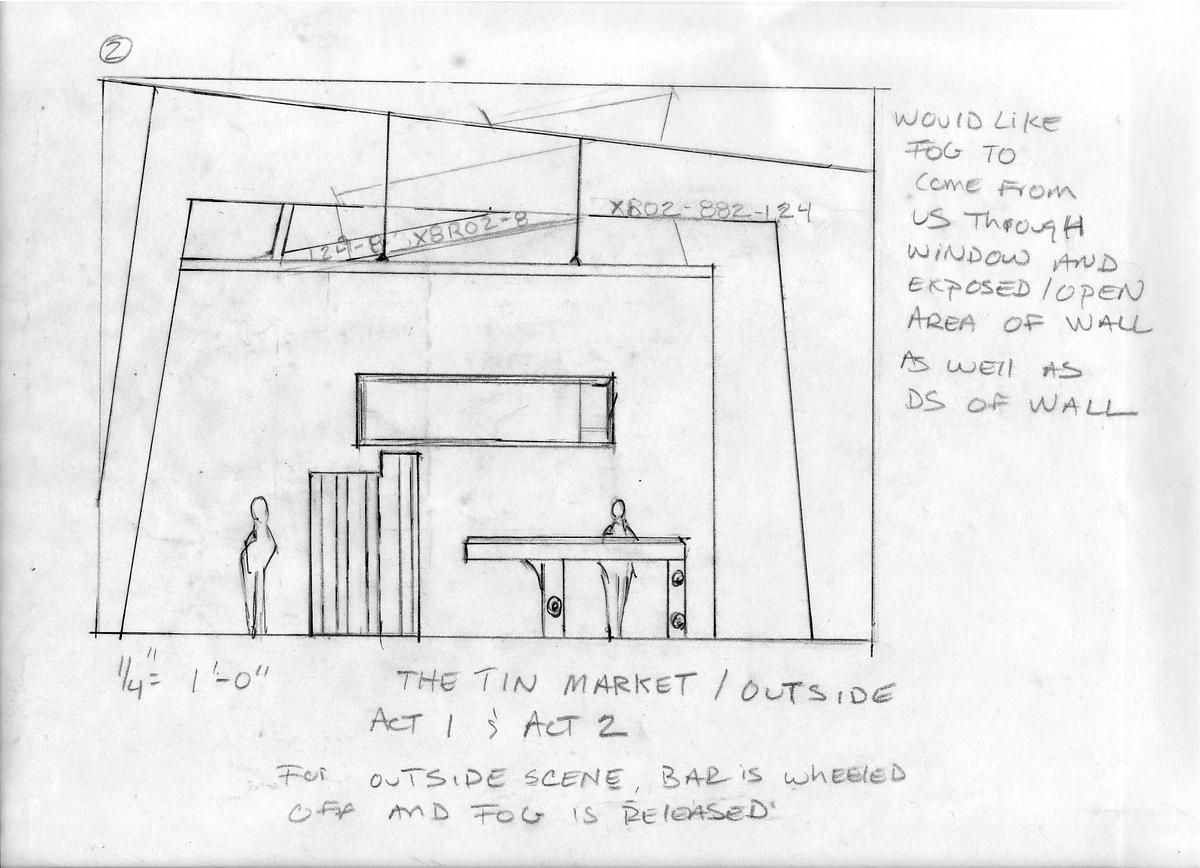 2
XR02-882-124
124-8 X8R02-8
WOULD LIKE
FOG TO
COME FROM
US THROUGH
WINDOW AND
EXPOSED/OPEN
AREA OF WALL
AS WELL AS
DS OF WALL
1/4"= 1'-0"
THE TIN MARKET / OUTSIDE
ACT 1 & ACT 2
FOR OUTSIDE SCENE, BAR IS WHEELED
OFF AND FOG IS RELEASED